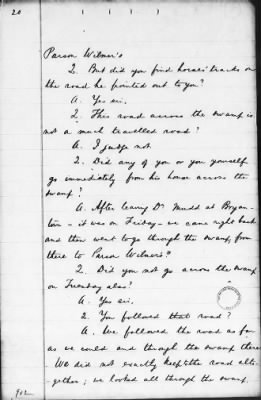 20
Parson Wilmer's
Q. But did you find horses' tracks on
the road he pointed out to you?
A. Yes sir.
Q. This road across the swamp is
not a much travelled road?
A. I judge not.
Q. Did any of you or you yourself
go immediately from his house across the
swamp?
A. After leaving Dr Mudd at Bryan-
town - it was on Friday - we came right back
and then went to go through the swamp, from
there to Parson Wilmer's?
Q. Did you not go across the swamp
on Tuesday also?
A. Yes sir.
Q. You followed that road?
A. We followed the road as far
as we could and through the swamp there
We did not exactly keep the road alto-
gether; we looked all through the swamp,